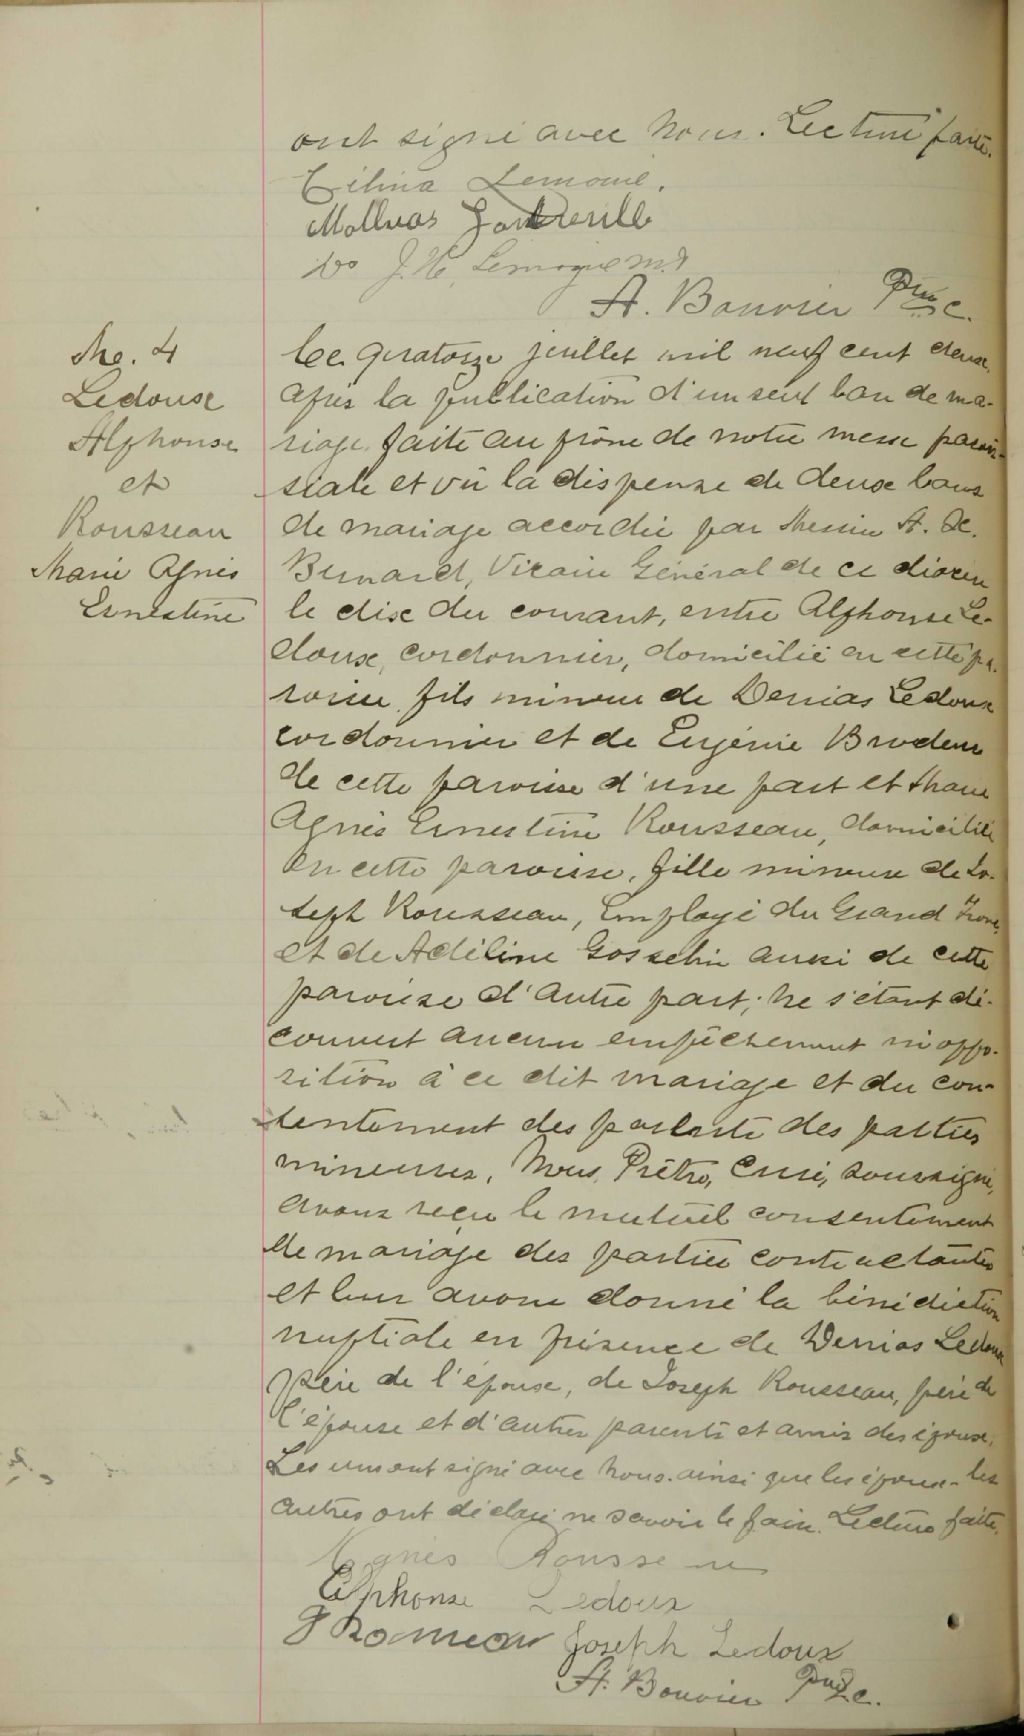 ont signé avec nous. Lecture faite.
Célina Lemoine.
J. H. Lemoyne M.D
A. Bouvier Ptre C.
M. 4
Ledoux
Alphonse
et
Rousseau
Marie Agnès
Ernestine
Le quatorze juillet mil neuf cent deux,
après la publication d'un seul ban de ma-
riage faite au prône de notre messe parois-
siale et vû la dispense de deux bans
de mariage accordée par Messire A. X.
Bernard, Vicaire Général de ce diocèse
le dix du courant, entre Alphonse Le-
doux, cordonnier, domicilié en cette pa-
roisse, fils mineur de Denias Ledoux
cordonnier et de Eugénie Brodeur
de cette paroisse d'une part et Marie
Agnès Ernestine Rousseau, domiciliée
en cette paroisse, fille mineure de Jo-
seph Rousseau, Employé du Grand Tronc,
et de Adéline Gosselin aussi de cette
paroisse d'autre part; ne s'étant dé-
couvert aucun empêchement ni oppo-
sition à ce dit mariage et du con-
sentement des parents des parties
mineures, Nous, Prêtre, Curé, soussigné,
avons reçu le mutuel consentement
de mariage des parties contractantes
et leur avons donné la bénédiction
nuptiale en présence de Denias Ledoux
père de l'époux, de Joseph Rousseau, père de
l'épouse et d'autres parents et amis des époux.
Les uns ont signé avec nous ainsi que les époux - les
autres ont déclaré ne savoir le faire. Lecture faite.
Agnès Rousseau
Alphonse Ledoux
Joseph Ledoux
A. Bouvier Ptre C.